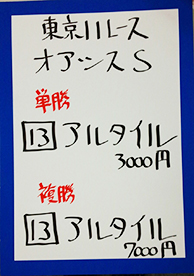 東京11レース
オアシスS
単勝
13 アルタイル
3000円
複勝
13 アルタイル
7000円